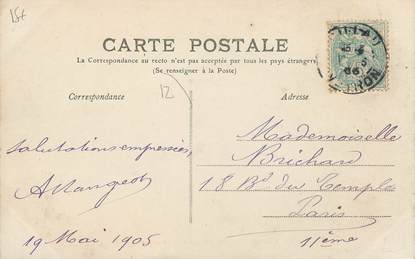 15+
MILLAU
AVEYRON
CARTE POSTALE
La Correspondance au recto n'est pas acceptée par tous les pays étrangers
(Se renseigner à la Poste)
Correspondance
12
Adresse
Salutations empressées,
19 Mai 1905
Mademoiselle
Brichard
18 Bd du Temple
Paris
11ème